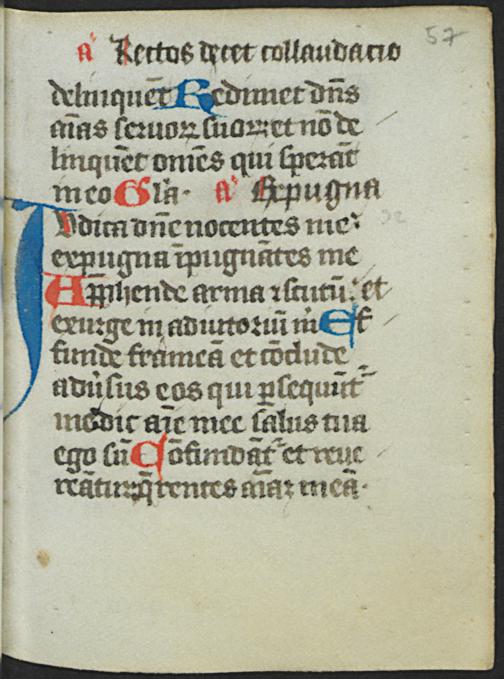 57
a Rectos decet collaudacio
delinquēt Redimet dn̄s
aīas seruoꝝ suoꝝ et nō de
linquēt om̄es qui sperāt
in eo Gla a Expugna
Iudica dn̄e nocentes me
expugna īpugnātes me
App̄hende arma ⁊ scutū et
exurge in adiutoriū m̄ Ef
funde frameā et cōclude
adūsus eos qui ꝑsequūt᷑
me dic aīe mee salus tua
ego sū Cōfundāt᷑ et reue
reāt᷑ q̄rentes aīaꝫ meā